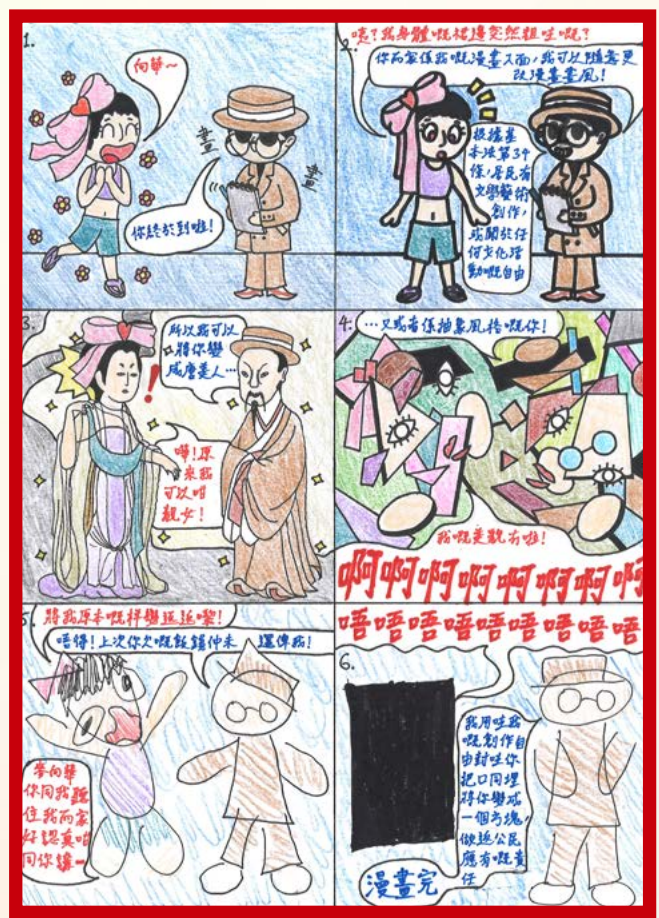 1.
向華~
畫
畫
你終於到啦!
2.
咦?我身體嘅裙邊突然粗咗嘅?
你而家係我嘅漫畫入面,我可以隨意更
改漫畫畫風!
根據基
本法第34
條,居民有
文學藝術
創作,
或關於任
何文化活
動嘅自由
3.
所以我可以
將你變
成唐美人…
嘩!原
來我
可以咁
靚女!
4.
…又或者係抽象風格嘅你!
我嘅美貌冇啦!
啊啊啊啊啊啊啊啊
5.
將我原本嘅樣變返返嚟!
唔得!上次你欠嘅飯錢仲未
還俾我!
麥向華
你同我聽
住我而家
好認真咁
同你講一
唔唔唔唔唔唔唔唔唔
6.
我用咗我
嘅創作自
由封咗你
把口同埋
將你變成
一個方塊,
做返公民
應有嘅責
任
漫畫完